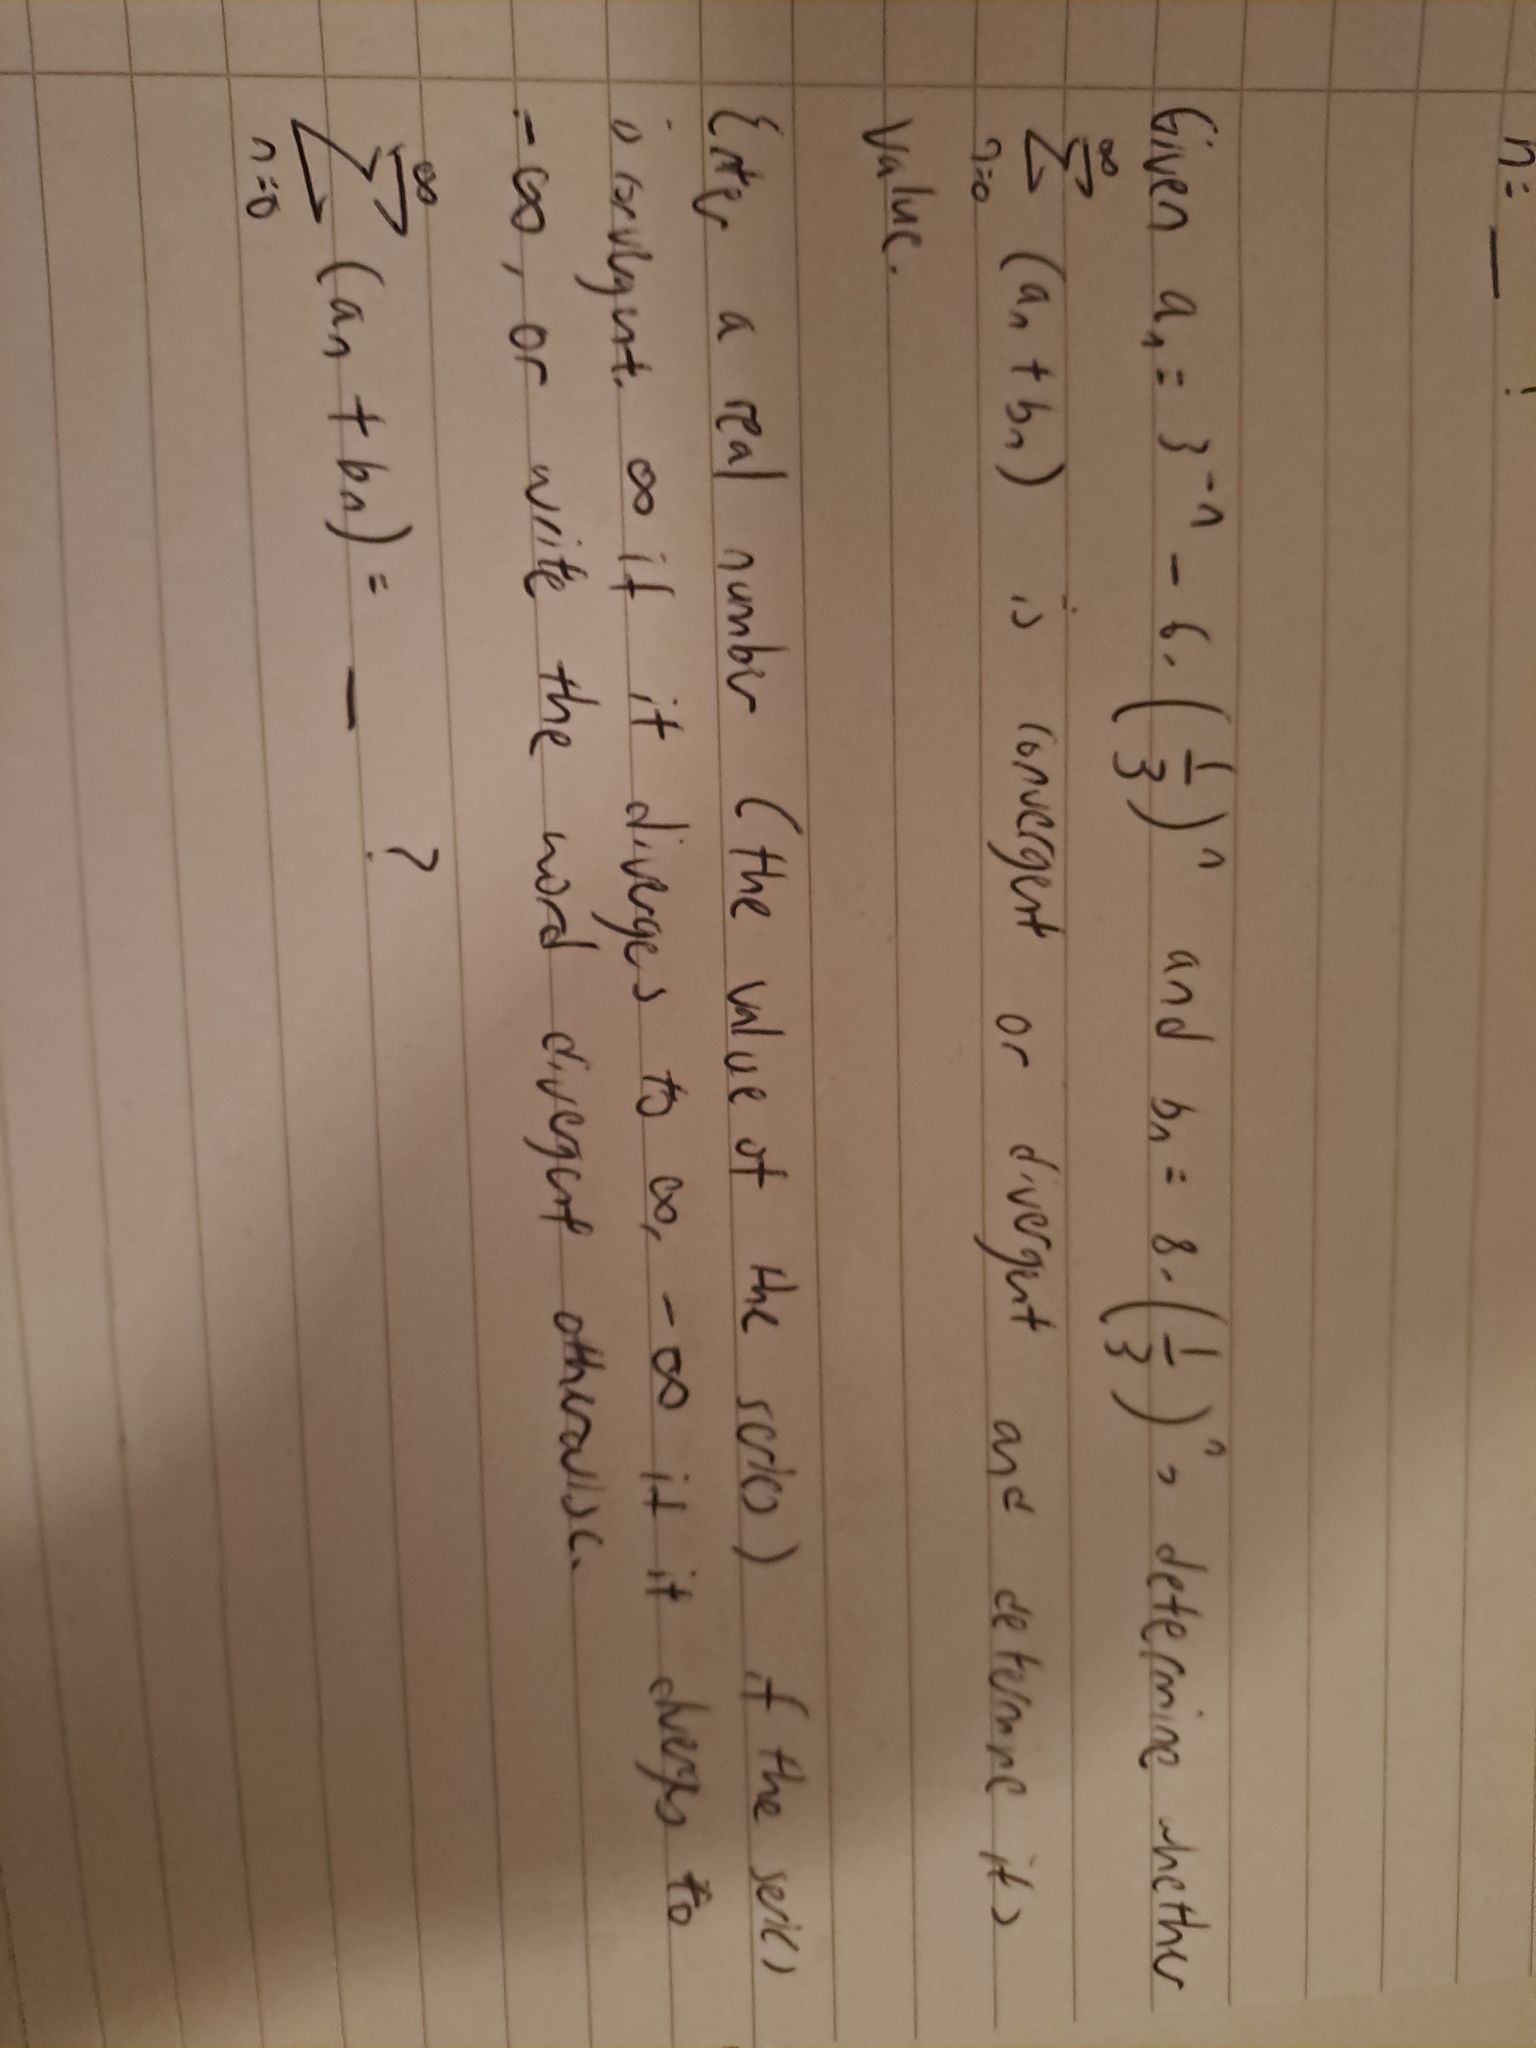 n=_ !
Given aₙ = 3⁻ⁿ - 6·(1/3)ⁿ and bₙ = 8·(1/3)ⁿ, determine whether
∞∑n=0 (aₙ + bₙ) is convergent or divergent and determine its
value.
Enter a real number (the value of the series) if the series
is convergent. ∞ if it diverges to ∞, -∞ if it diverges to
-∞, or write the word divergent otherwise.
∞∑n=0 (aₙ + bₙ) = _ ?